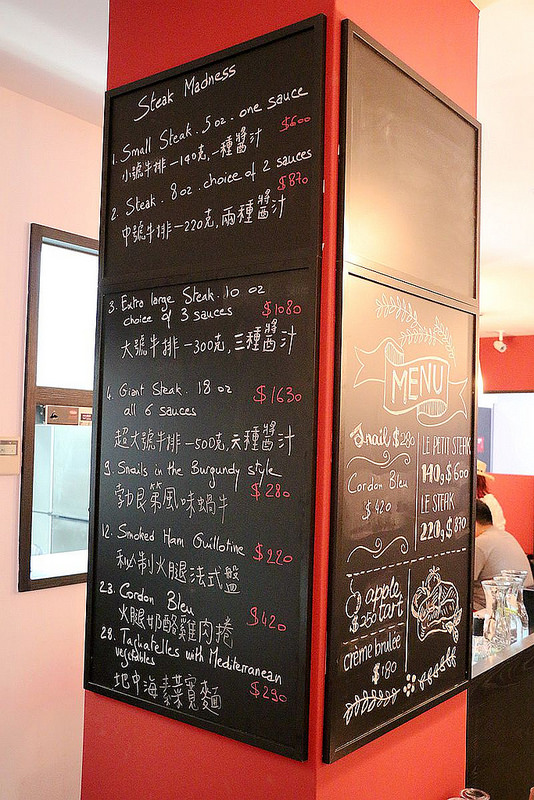 Steak Madness
1. Small Steak. 5 oz. one sauce
$600
小號牛排-140克,一種醬汁
2. Steak. 8 oz. choice of 2 sauces
$870
中號牛排-220克,兩種醬汁
3. Extra large Steak. 10 oz
choice of 3 sauces $1080
大號牛排-300克,三種醬汁
4. Giant Steak. 18 oz
all 6 sauces $1630
超大號牛排-500克,六種醬汁
9. Snails in the Burgundy style
$280
勃艮第風味蝸牛
12. Smoked Ham Guillotine
$220
私制火腿法式盤
23. Cordon Bleu
$420
火腿奶酪雞肉捲
28. Tagliatelles with Mediterranean
vegetables
$290
地中海素菜寬麵
MENU
Snail $280
Cordon Bleu
$420
LE PETIT STEAK
140g $600
LE STEAK
220g $870
apple
tart
$250
crème brulée
$180